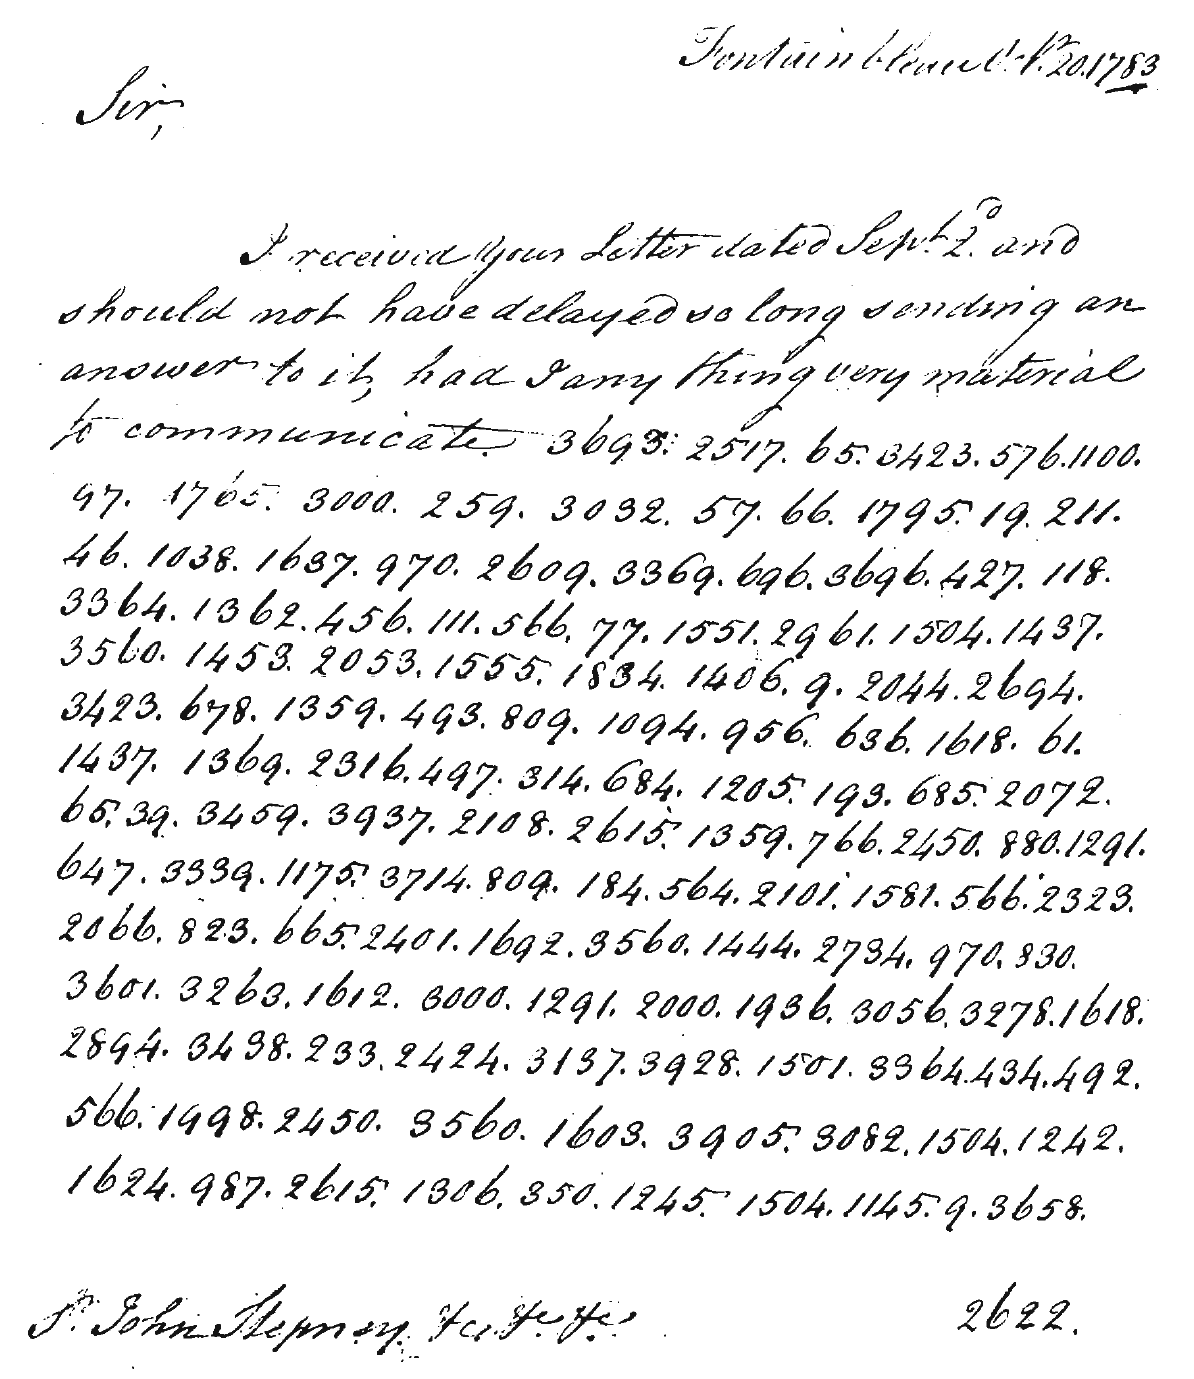 Fontainbleau Oct.r 20. 1783
Sir,
I received Your Letter dated Sept. 2.d and
should not have delayed so long sending an
answer to it, had I any thing very material
to communicate. 3693. 2517. 65. 3423. 576. 1100.
97. 1765. 3000. 259. 3032. 57. 66. 1795. 19. 211.
46. 1038. 1637. 970. 2609. 3369. 696. 3696. 427. 118.
3364. 1362. 456. 111. 566. 77. 1551. 2961. 1504. 1437.
3560. 1453. 2053. 1555. 1834. 1406. 9. 2044. 2694.
3423. 678. 1359. 493. 809. 1094. 956. 636. 1618. 61.
1437. 1369. 2316. 497. 314. 684. 1205. 193. 685. 2072.
65. 39. 3459. 3937. 2108. 2615. 1359. 766. 2450. 880. 1291.
647. 3339. 1175. 3714. 809. 184. 564. 2101. 1581. 566. 2323.
2066. 823. 665. 2401. 1692. 3560. 1444. 2734. 970. 830.
3601. 3263. 1612. 3000. 1291. 2000. 1936. 3056. 3278. 1618.
2894. 3438. 233. 2424. 3137. 3928. 1501. 3364. 434. 492.
566. 1998. 2450. 3560. 1603. 3905. 3082. 1504. 1242.
1624. 987. 2615. 1306. 350. 1245. 1504. 1145. 9. 3658.
Sr. John Stepney &c. &c. &c. 2622.